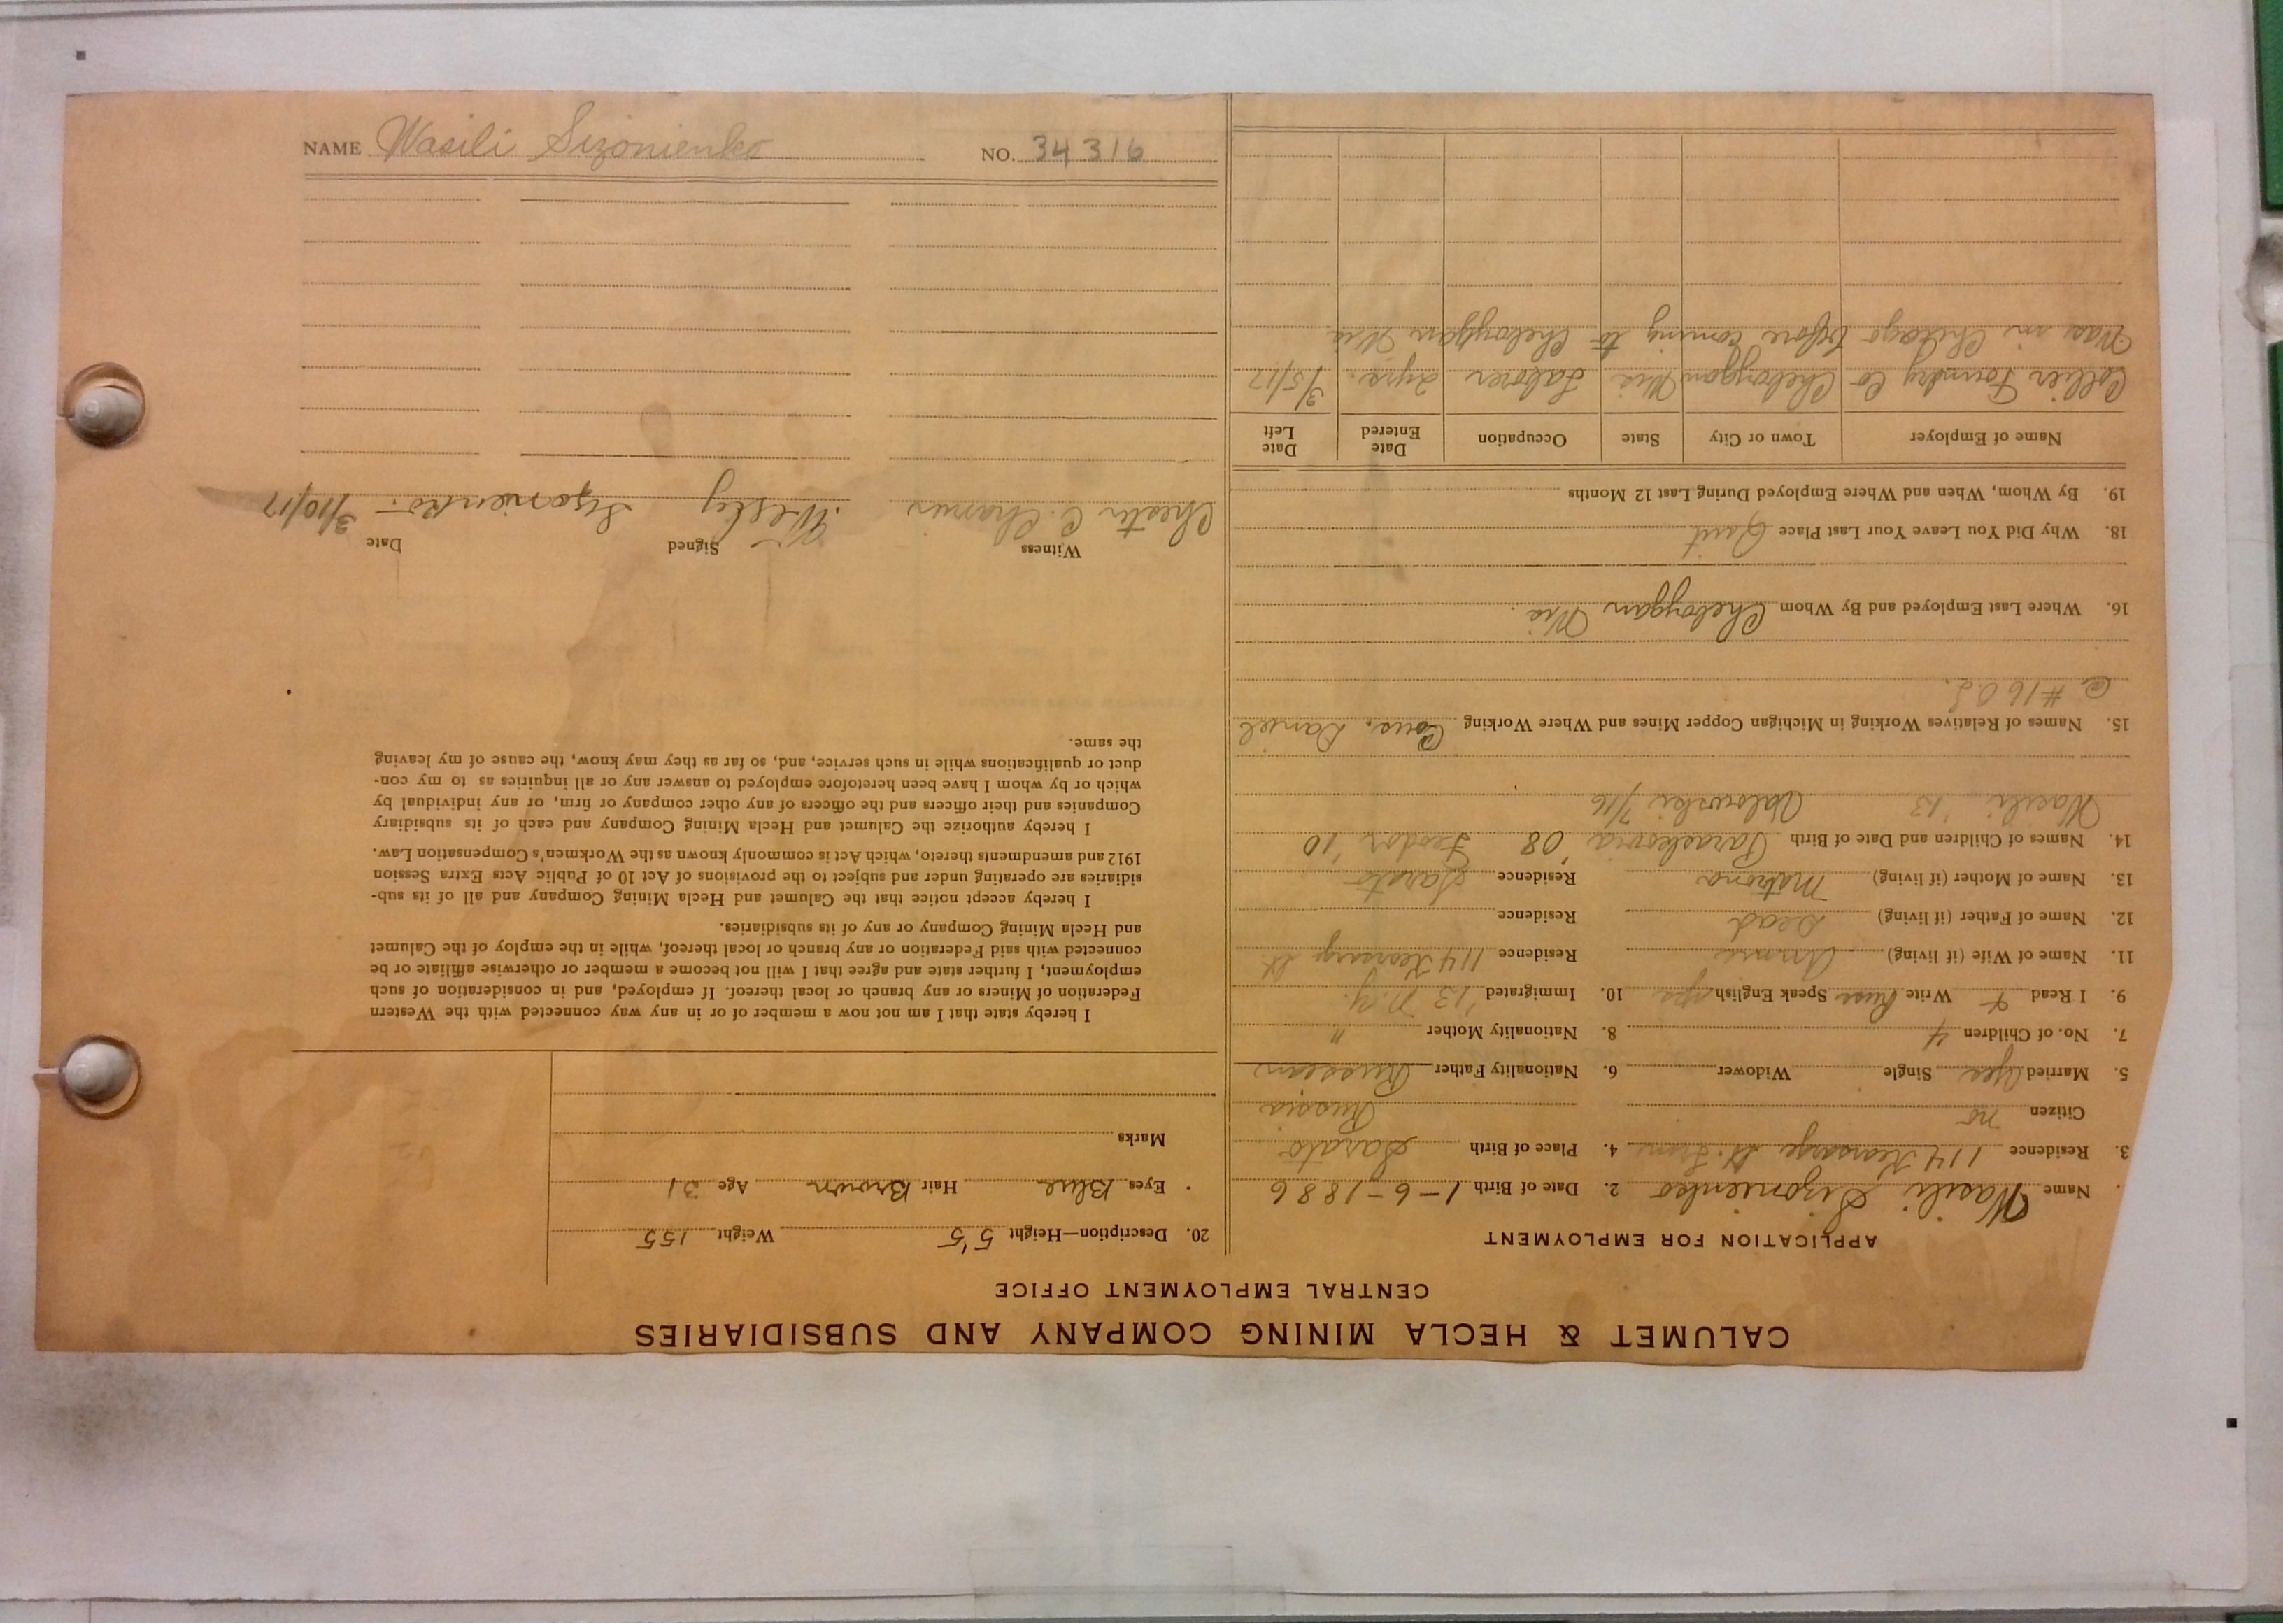 CALUMET & HECLA MINING COMPANY AND SUBSIDIARIES
CENTRAL EMPLOYMENT OFFICE
APPLICATION FOR EMPLOYMENT
Name Wasili Sizonienko 2. Date of Birth 1-6-1886
3. Residence 114 Kearsarge St. 4. Place of Birth Sarato
Citizen no Russia
5. Married yes Single Widower 6. Nationality Father Russian
7. No. of Children 4 8. Nationality Mother "
9. I Read & Write Russ Speak English yes 10. Immigrated '13 N.Y.
11. Name of Wife (if living) Anna Residence 114 Kearsarge St
12. Name of Father (if living) Dead Residence
13. Name of Mother (if living) Matrona Residence Sarato
14. Names of Children and Date of Birth '08 Feodor '10
Wasili '13 7/16
15. Names of Relatives Working in Michigan Copper Mines and Where Working Cous. Daniel
@ #16 O.L.
16. Where Last Employed and By Whom Cheboygan Wis.
18. Why Did You Leave Your Last Place Quit
19. By Whom, When and Where Employed During Last 12 Months
Name of Employer Town or City State Occupation Date Entered Date Left
Collier Foundry Co Cheboygan Wis Laborer 2 yrs. 3/5/17
Was in Chicago before coming to Cheboygan Wis.
20. Description—Height 5'5 Weight 155
Eyes Blue Hair Brown Age 31
Marks
I hereby state that I am not now a member of or in any way connected with the Western
Federation of Miners or any branch or local thereof. If employed, and in consideration of such
employment, I further state and agree that I will not become a member or otherwise affiliate or be
connected with said Federation or any branch or local thereof, while in the employ of the Calumet
and Hecla Mining Company or any of its subsidiaries.
I hereby accept notice that the Calumet and Hecla Mining Company and all of its sub-
sidiaries are operating under and subject to the provisions of Act 10 of Public Acts Extra Session
1912 and amendments thereto, which Act is commonly known as the Workmen's Compensation Law.
I hereby authorize the Calumet and Hecla Mining Company and each of its subsidiary
Companies and their officers and the officers of any other company or firm, or any individual by
which or by whom I have been heretofore employed to answer any or all inquiries as to my con-
duct or qualifications while in such service, and, so far as they may know, the cause of my leaving
the same.
Witness Signed Date
Chester C. Wasily Sizonienko 3/10/17
NAME Wasili Sizonienko NO. 34316